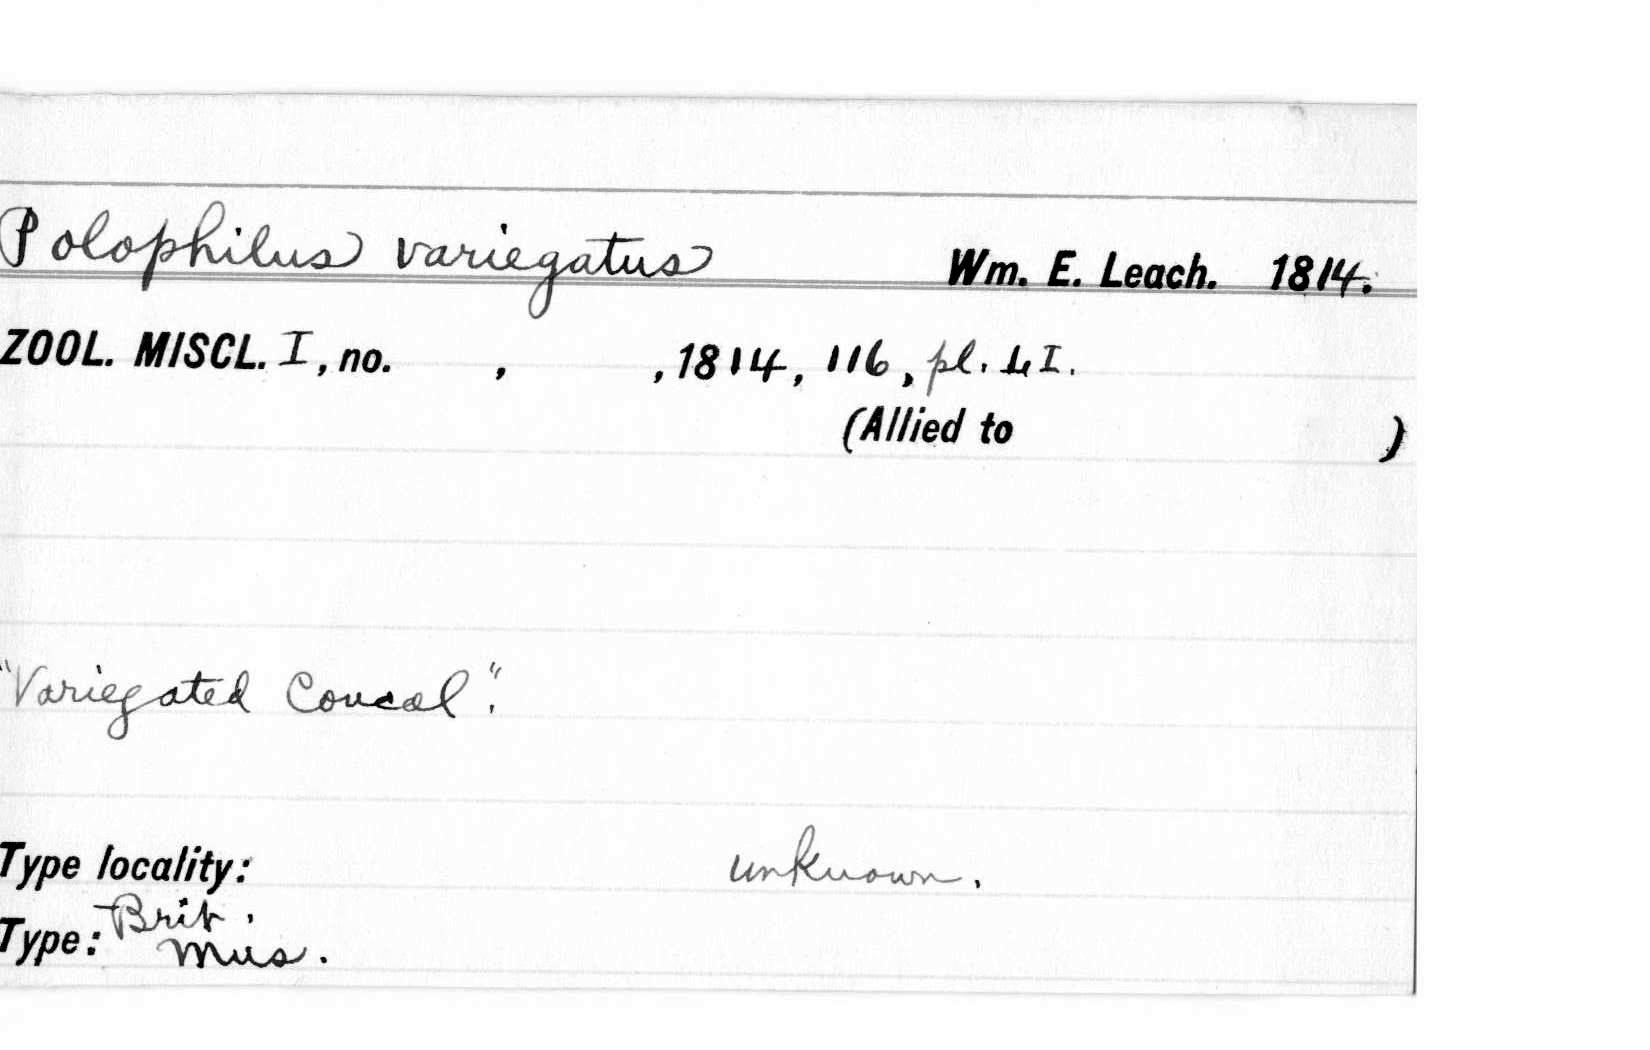 Polophilus variegatus Wm. E. Leach. 1814.
ZOOL. MISCL. I, no. , , 1814, 116, pl. LI.
(Allied to )
"Variegated Coucal".
Type locality: unknown.
Type: Brit.
Mus.